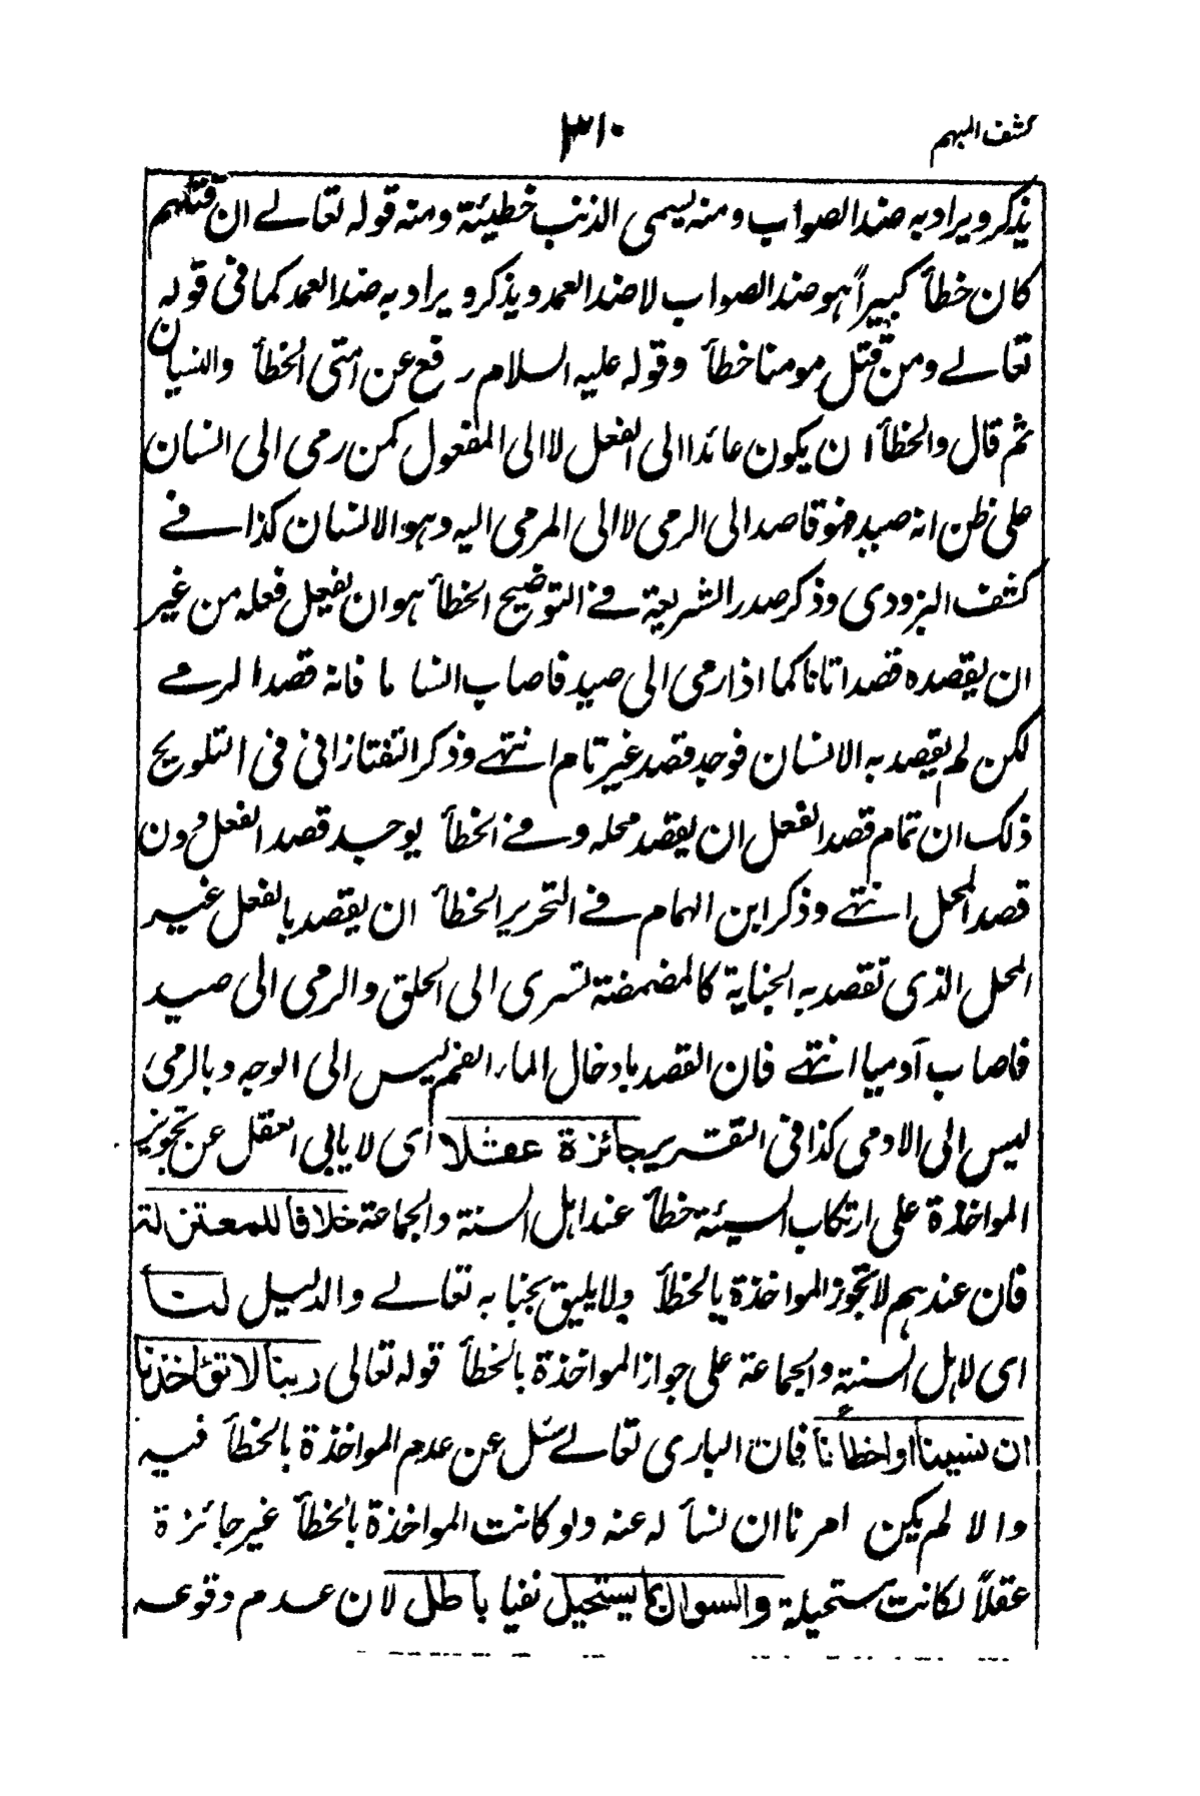 كشف المبهم
٣١٠
يذكر ويراد به ضد الصواب ومنه يسمى الذنب خطيئة ومنه قوله تعالے ان قتلهم
كان خطأ كبيراً هو ضد الصواب لا ضد العمد ويذكر ويراد به ضد العمد كما فى قوله
تعالے ومن قتل مومنا خطأ وقوله عليه السلام رفع عن امتى الخطأ والنسيان
ثم قال والخطأ ان يكون عائدا الى الفعل لا الى المفعول كمن رمى الى انسان
على ظن انه صيد فهو قاصد الى الرمى لا الى المرمى اليه وهو الانسان كذا فے
كشف البزودى وذكر صدر الشريعة فے التوضيح الخطأ هو ان يفعل فعله من غير
ان يقصده قصدا تاما كما اذا رمى الى صيد فاصاب انسا ما فانه قصد الرمے
لكن لم يقصد به الانسان فوجد قصد غير تام انتهے وذكر التفتازانى فى التلويح
ذلك ان تمام قصد الفعل ان يقصد محله وفے الخطأ يوجد قصد الفعل دون
قصد المحل انتهے وذكر ابن الهمام فے التحرير الخطأ ان يقصد بالفعل غير
المحل الذى تقصد به الجناية كالمضمضة تسرى الى الحلق والرمى الى صيد
فاصاب آدميا انتهے فان القصد بادخال الماء الفم ليس الى الوجه وبالرمى
ليس الى الادمى كذا فى التقرير جائزة عقلا اى لا يابى العقل عن تجويز
المواخذة على ارتكاب السيئة خطأ عند اهل السنة والجماعة خلافا للمعتزلة
فان عندهم لا تجوز المواخذة بالخطأ ولا يليق بجنابه تعالے والدليل لنا
اى لاهل السنة والجماعة على جواز المواخذة بالخطأ قوله تعالى ربنا لا تؤاخذنا
ان نسينا او اخطأنا فان البارى تعالے سئل عن عدم المواخذة بالخطأ فيه
والا لم يكن امرنا ان نسأله عنه ولو كانت المواخذة بالخطأ غير جائزة
عقلاً لكانت مستحيلة والسوال بما يستحيل نفيا باطل لان عدم وقوعه